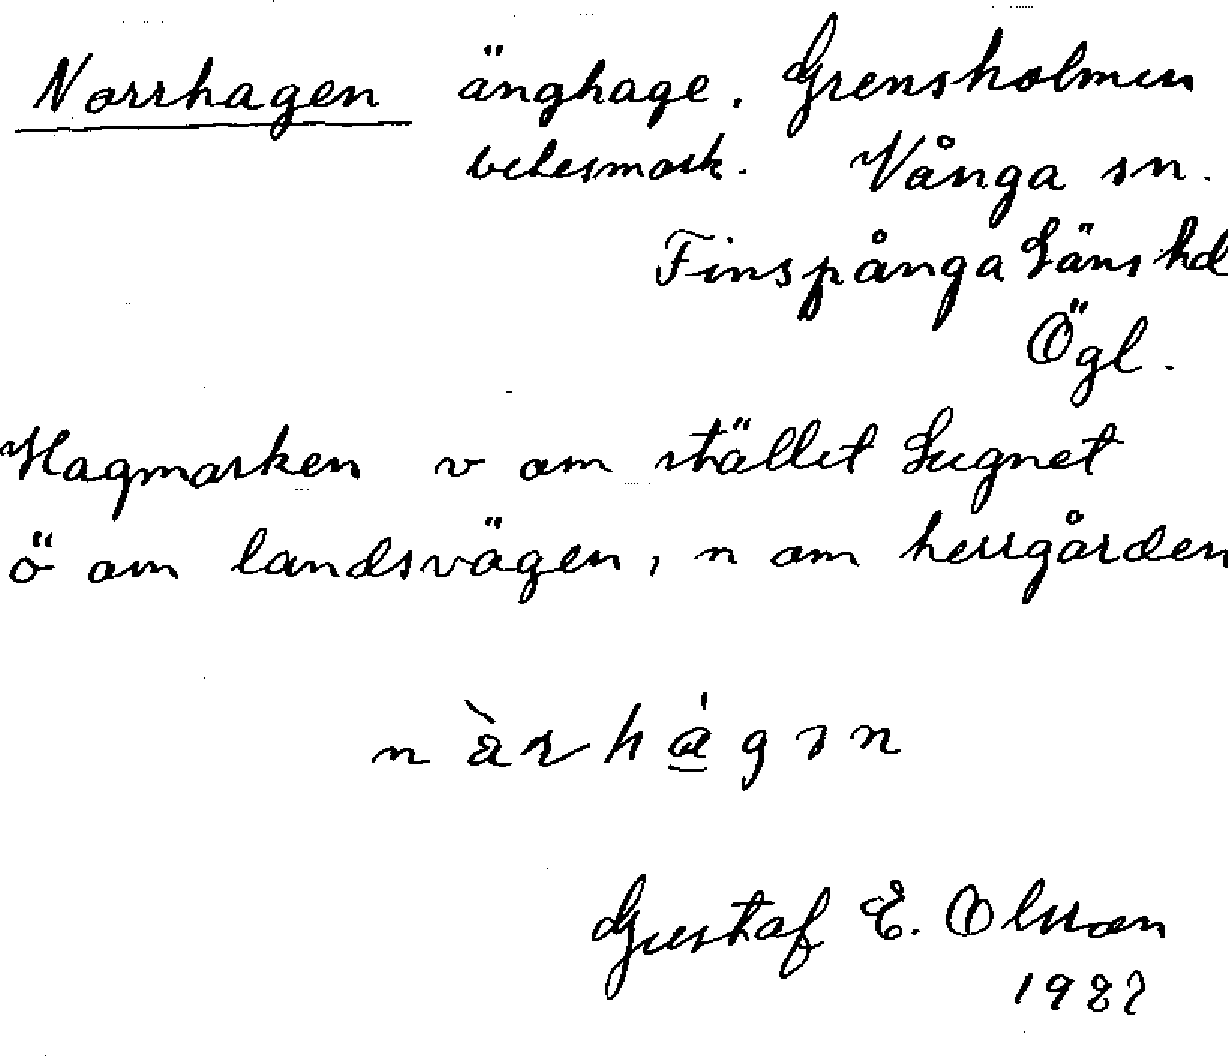 Norrhagen änghage. Grensholmen
betesmark. Vånga sn.
Finspånga Läns hd
Ögl.
Hagmarken v om stället Lugnet
ö om landsvägen, n om herrgården
Gustaf E. Olsson